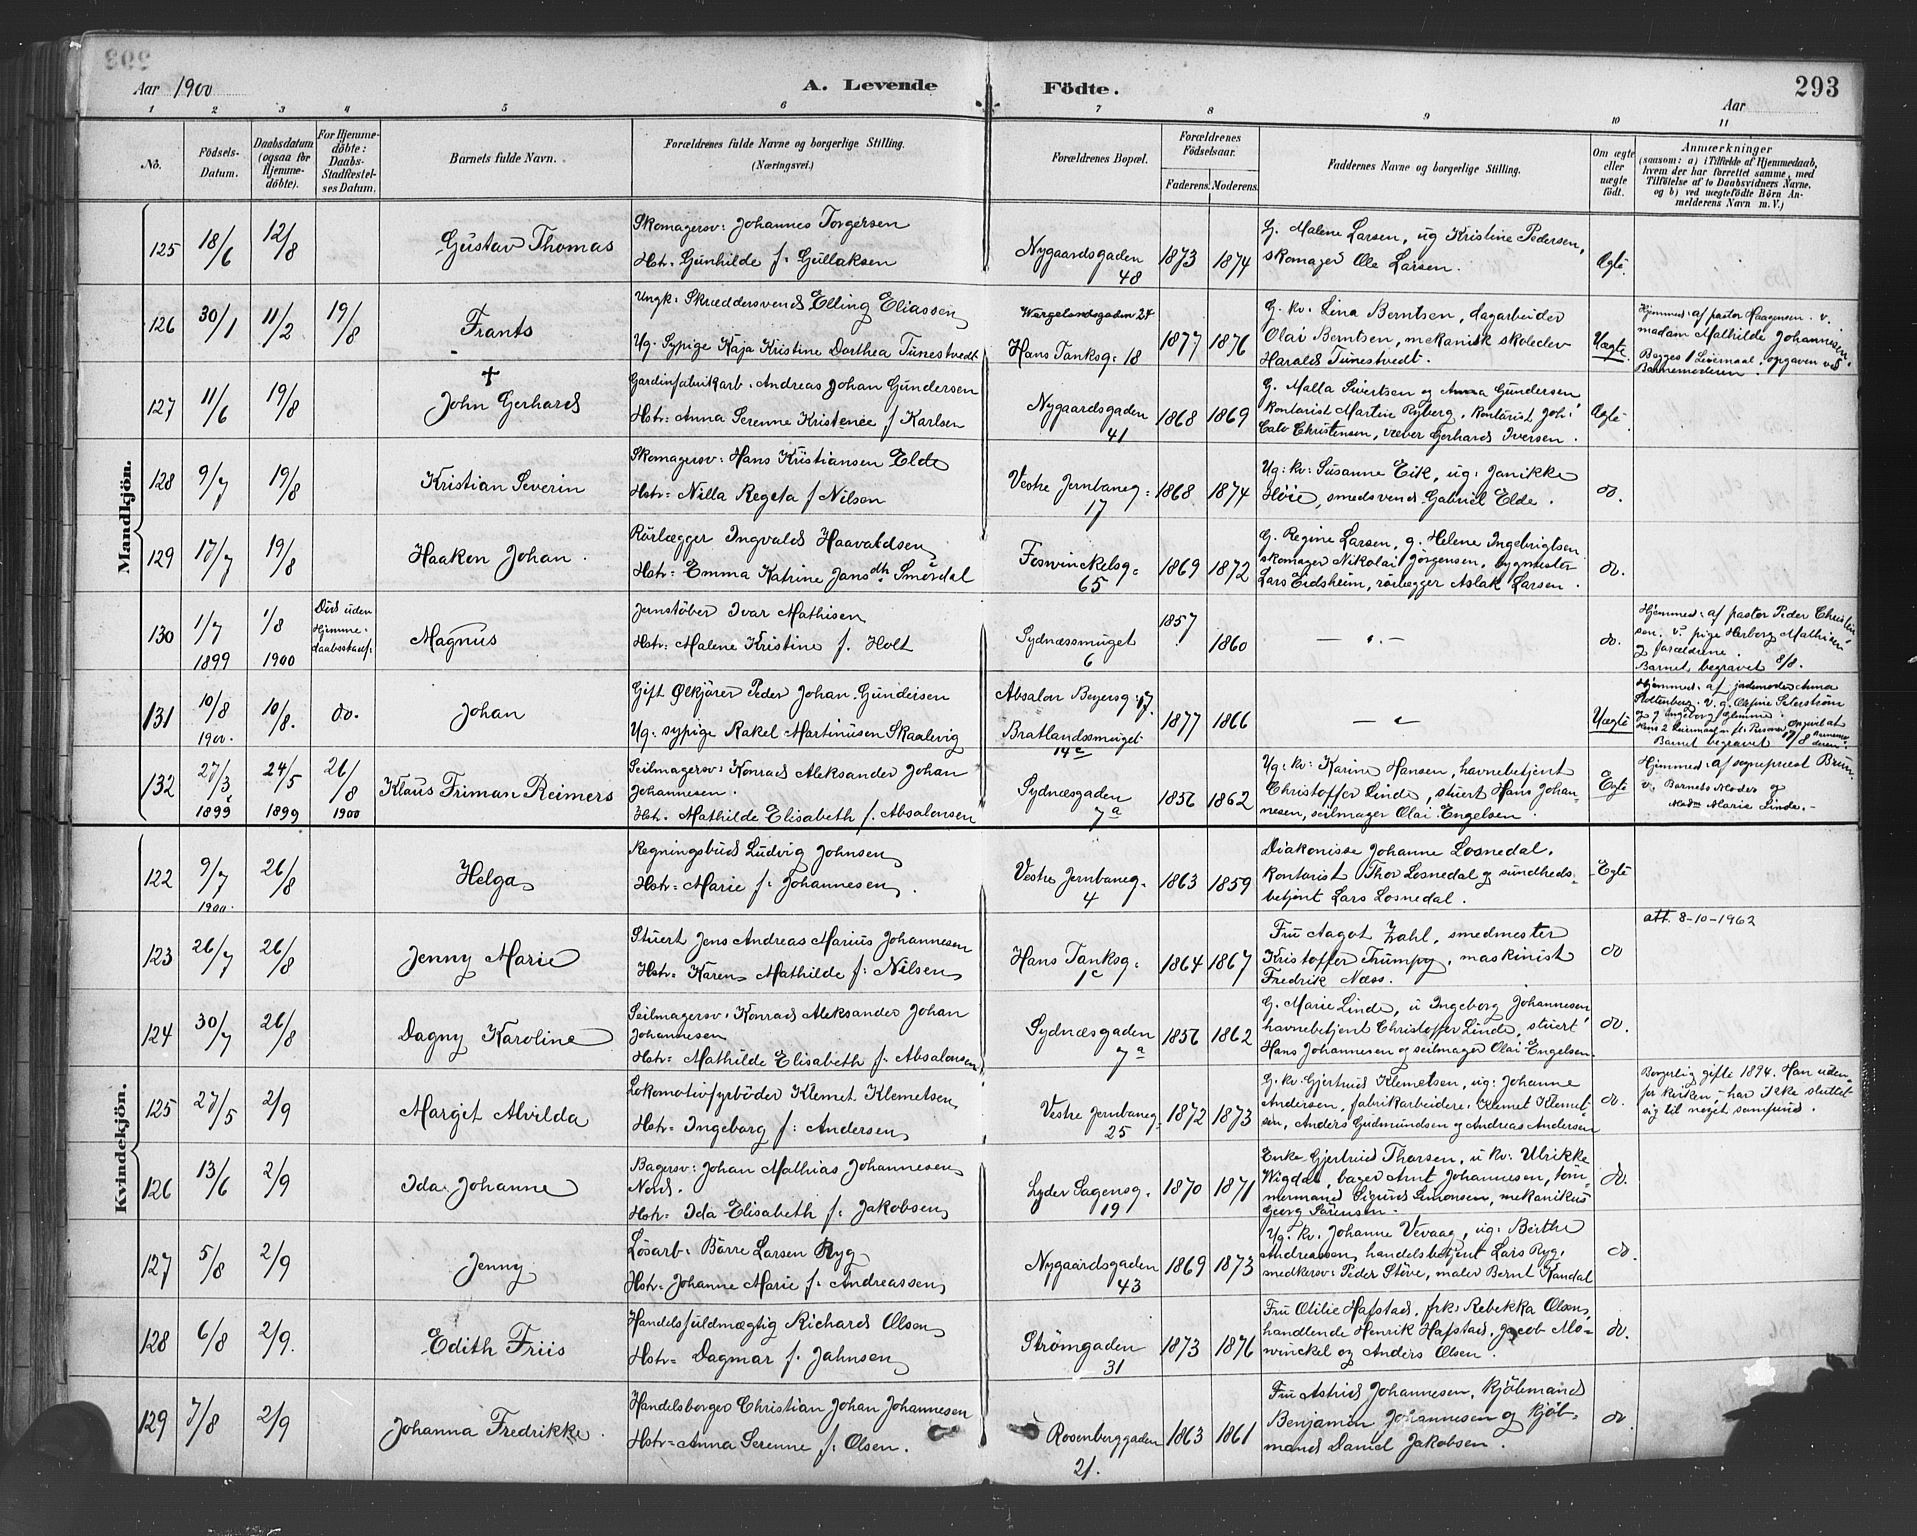 Aar 1900
A. Levende
Födte.
Aar
293
1 2 3 4 5 6 7 8 9 10 11
No.
Födsels-
Datum.
Daabsdatum
(ogsaa for
Hjemme-
döbte).
For Hjemme-
döbte:
Daabs-
Stadfæstel-
ses Datum.
Barnets fulde Navn.
Forældrenes fulde Navne og borgerlige Stilling.
(Næringsvei.)
Forældrenes Bopæl.
Forældrenes
Födselsaar.
Faderens. Moderens.
Faddernes Navne og borgerlige Stilling.
Om ægte
eller
uægte
födt.
Anmærkninger
(saasom: a) i Tilfælde af Hjemmedaab,
hvem der har forrettet samme, med
Tilföielse af to Daabsvidners Navne,
og b) ved uægtefödte Börn An-
melderens Navn m. V.)
Mandkjön.
125 18/6 12/8
Gustav Thomas
Skomagersv: Johannes Torgersen
Hstr: Gunhilde f: Gullaksen
Nygaardsgaden
48
1873 1874
G. Malene Larsen, ug Kristine Pedersen,
skomager Ole Larsen.
Ægte
126 30/1 11/2 19/8
Frants
Ungk: Skræddersvend Elling Eliassen
Ug. Sypige Kaja Kristine Dorthea Tunestvedt
Wergelandsgaden 24
Hans Tanksg: 18
1877 1876
G. kv: Lina Berntsen, dagarbeider
Olai Berntsen, mekanisk skoleelev
Harald Tunestvedt.
Uægte.
Hjemmed: af pastor Haagensen. v.
madam Mathilde Johannesen.
Begges 1 Leiermaal. opgaven ved
Barnemoderen.
127 11/6 19/8
✝
John Gerhard
Gardinfabrikarb. Andreas Johan Gundersen
Hstr: Anna Serenne Kristenée f Karlsen
Nygaardsgaden
41
1868 1869
G. Malla Sivertsen og Anna Gundersen,
kontorist Martin Ryberg, kontorist Joh:
Calv Christensen, væver Gerhard Iversen.
Ægte.
128 9/7 19/8
Kristian Severin
Skomagersv: Hans Kristiansen Elde
Hstr: Nilla Regeta f Nilsen
Vestre Jernbaneg:
17
1868 1874
Ug: kv: Susanne Eik, ug: Janikke
Høie, smedsvend Gabriel Elde.
do.
129 17/7 19/8
Haaken Johan.
Rørlægger Ingvald Haavaldsen
Hstr: Emma Katrine Jansdtr Smördal
Foswinckelsg:
65
1869 1872
G. Regine Larsen, g. Helene Ingebrigtsen
skomager Nikolai Jörgensen, bygmester
Lars Eidsheim, rørlægger Aslak Larsen.
do.
130 1/7 1/8
1899 1900
Död uden
Hjemme-
daabsstadf:
Magnus
Jernstöber Ivar Mathisen
Hstr: Malene Kristine f. Holt
Sydnæssmuget
6
1857 1860
do.
Hjemmed: af pastor Peder Christen
sen. v. pige Herborg Mathisen
og forældrene.
Barnet begravet 8/8.
131 10/8 10/8. do.
1900.
Johan
Gift Ølkjörer Peder Johan Gundersen
Ug: sypige Rakel Martinusen Skaalevig
Absalon Beyersg: 17.
Bratlandssmuget
14c
1877 1866
Uægte
Hjemmed: af jademoder Anna
Barnet begravet 17/8
132 27/3 24/5 26/8
1899 1899 1900
Klaus Friman Reimers
Seilmagersv: Konrad Aleksander Johan
Johannesen.
Hstr. Mathilde Elisabeth f. Absalonsen
Sydnæsgaden
7a
1856 1862
Ug: kv: Karine Hansen, havnebetjent
Christoffer Linde, stuert Hans Johan-
nesen, seilmager Olai Engelsen.
Egte
Hjemmed: af sognepræst Bruun
v. Barnets Moder og
Madm Marie Linde.-
Kvindekjön.
122 9/7 26/8
1900.
Helga
Regningsbud Ludvig Johnsen
Hstr: Marie f: Johannesen.
Vestre Jernbaneg.
4
1863 1859
Diakonisse Johanne Losnedal,
kontorist Thor Losnedal og sundheds-
betjent Lars Losnedal.
Egte
123 26/7 26/8
Jenny Marie
Stuert Jens Andreas Marius Johannesen
Hstr: Karen Mathilde f: Nilsen
Hans Tanksg:
1c
1864 1867
Fru Aagot Zahl, smedmester
Kristoffer Trumpy, maskinist
Fredrik Næss.
do
att. 8-10-1962
124 30/7 26/8
Dagny Karoline
Seilmagersv: Konrad Aleksander Johan
Johannesen
Hstr: Mathilde Elisabeth f. Absalonsen
Sydnæsgaden
7a
1856 1862
G. Marie Linde, u Ingeborg Johannesen,
havnebetjent Christoffer Linde, stuert
Hans Johannesen og seilmager Olai Engelsen.
do.
125 27/5 2/9
Margit Alvilda
Lokomotivfyrböder Klemet Klemetsen
Hstr: Ingeborg f: Andersen
Vestre Jernbaneg:
25
1872 1873
G. kv. Gjertrud Klemetsen, ug: Johanne
Andersen, fabrikarbeidere: Klemet Klemet-
sen, Anders Gudmundsen og Andreas Andersen
do.
Borgerlig gifte 1894. Han uden-
for kirken, har ikke sluttet
sig til noget samfund.
126 13/6 2/9
Ida Johanne
Bagersv: Johan Mathias Johannesen
Nord.
Hstr: Ida Elisabeth f: Jakobsen
Lyder Sagensg.
19
1870 1871
Enke Gjertrud Thorsen, u kv: Ulrikke
Vigdal, bager Arnt Johannesen, töm-
mermand Sigurd Simonsen, mekanikus
Georg Sörensen.
do.
127 5/8 2/9
Jenny
Lösarb: Börre Larsen Ryg
Hstr: Johanne Marie f: Andreassen
Nygaardsgaden
43
1869 1873
Ug. kv. Johanne Vevaag, ug: Birthe
Andreassen, handelsbetjent Lars Ryg,
snedkersv: Peder Störe, maler Bernt Kandal
do
128 6/8 2/9.
Edith Friis
Handelsfuldmægtig Richard Olsen
Hstr: Dagmar f. Jahnsen
Strömgaden
31
1873 1876
Fru Otilie Hafstad, frk: Rebekka Olsen,
handlende Henrik Hafstad, Jacob Mo-
winckel og Anders Olsen.
do.
129 7/8 2/9
Johanna Fredrikke.
Handelsborger Christian Johan Johannesen
Hstr: Anna Serenne f: Olsen.
Rosenberggaden
21.
1863 1861
Fru Astrid Johannesen, kjöbmand
Benjamin Johannesen og kjöb-
mand Daniel Jakobsen.
do